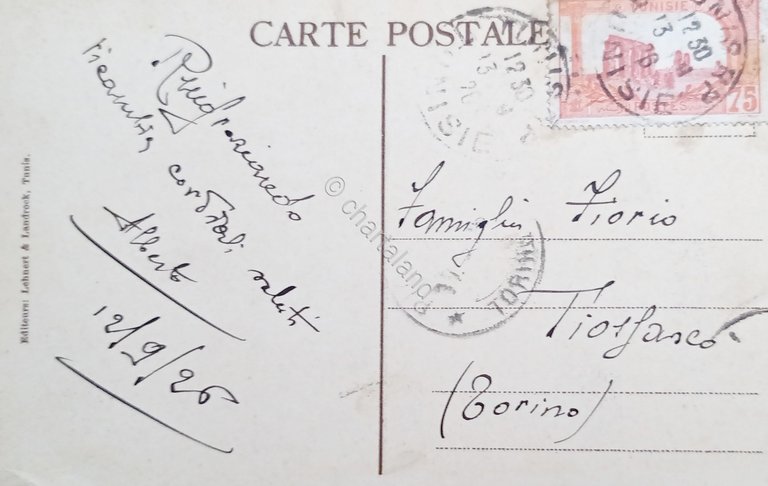 CARTE POSTALE
TUNISIE
75
12 30
13
TUNIS
TUNISIE
Ringraziando
ricambia
cordiali saluti
Alberto
12/9/26
Editeurs: Lehnert & Landrock, Tunis.
© chartaland
TORINO
Famiglia Fiorio
Piossasco
(Torino)